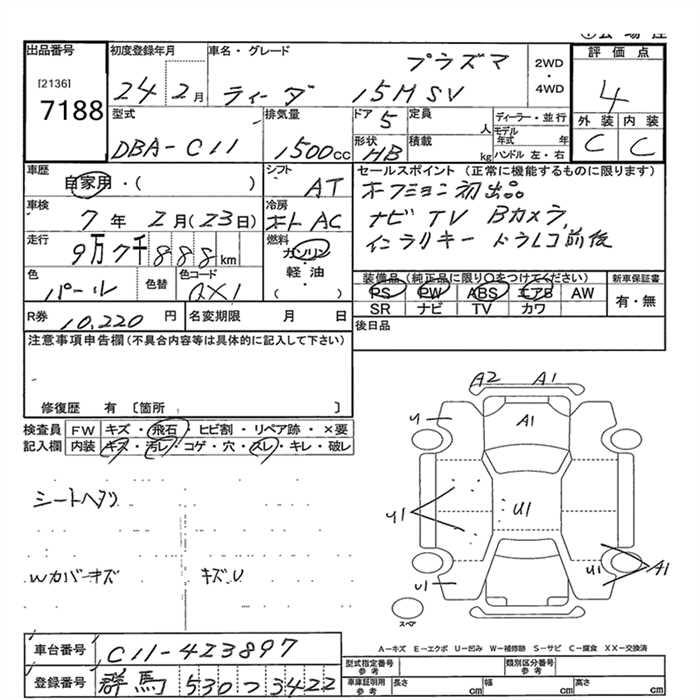 出品番号
[2136]
7188
初度登録年月
24 2月
車名・グレード
プラズマ
ティーダ 15M SV
2WD
・
4WD
評価点
4
外装 内装
C C
型式
DBA-C11
排気量
1500cc
ドア
5
定員
人
形状
HB
積載
kg
ディーラー・並行
モデル年式 年
ハンドル 左・右
車歴
自家用・( )
シフト
AT
車検
7年 2月(23日)
冷房
AC
走行
9万7千888km
燃料
ガソリン
・
軽油
( )
色
パール
色替
色コード
QX1
セールスポイント (正常に機能するものに限ります)
初出品
ナビ TV Bカメラ
インテリキー ドラレコ前後
装備品 (純正品に限り○をつけてください)
PS PW ABS エアB AW
SR ナビ TV カワ
新車保証書
有・無
R券 10,220円
名変期限 月 日
後日品
注意事項申告欄(不具合内容等は具体的に記入して下さい)
修復歴 有 〔箇所 〕
検査員記入欄
FW キズ・飛石・ヒビ割・リペア跡・×要
内装 キズ・汚レ・コゲ・穴・スレ・キレ・破レ
シートヘタリ
Wカバーキズ キズU
A2 A1
A1
U1
U1
U1
U1 A1
スペア
A-キズ E-エクボ U-凹み W-補修跡 S-サビ C-腐食 XX-交換済
車台番号 C11-423897
登録番号 群馬 530 つ 3422
型式指定番号 参考
類別区分番号 参考
車庫証明用 参考
長さ cm 幅 cm 高さ cm